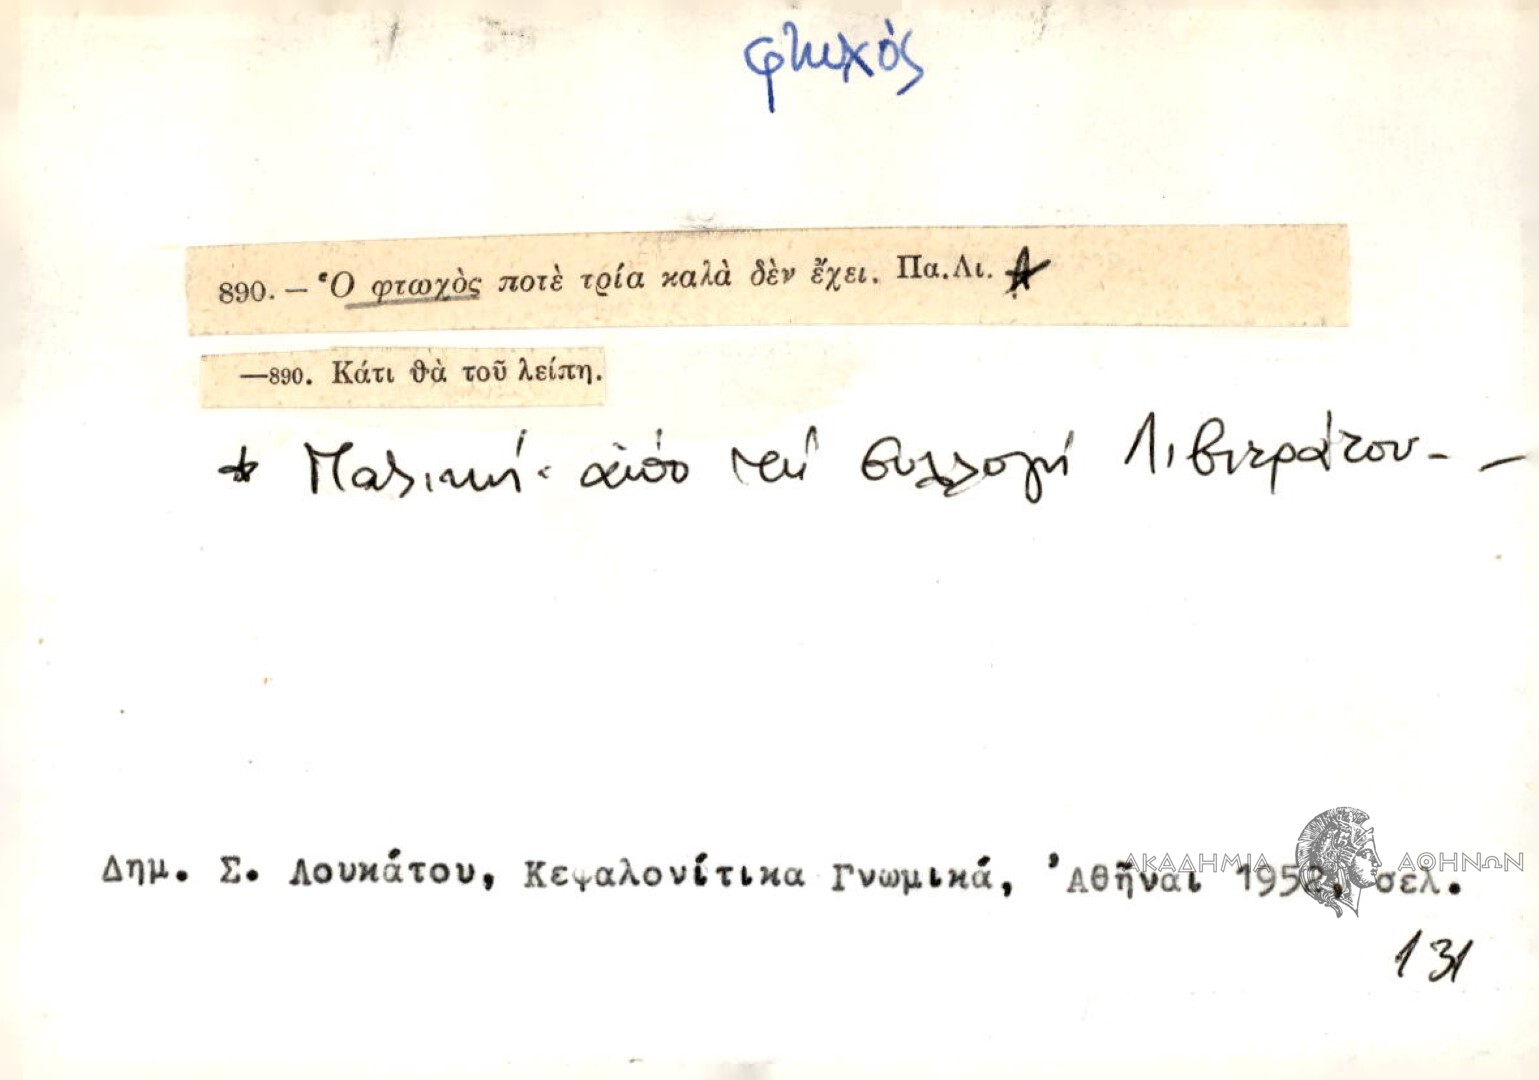 φτωχός
890. – Ὁ φτωχὸς ποτὲ τρία καλὰ δὲν ἔχει. Πα.Λι. *
—890. Κάτι θὰ τοῦ λείπη.
* Παλικὴ· ἀπὸ τὴ συλλογὴ Λιβιεράτου. –
Δημ. Σ. Λουκάτου, Κεφαλονίτικα Γνωμικά, Ἀθῆναι 1952, σελ.
131
ΑΚΑΔΗΜΙΑ ΑΘΗΝΩΝ